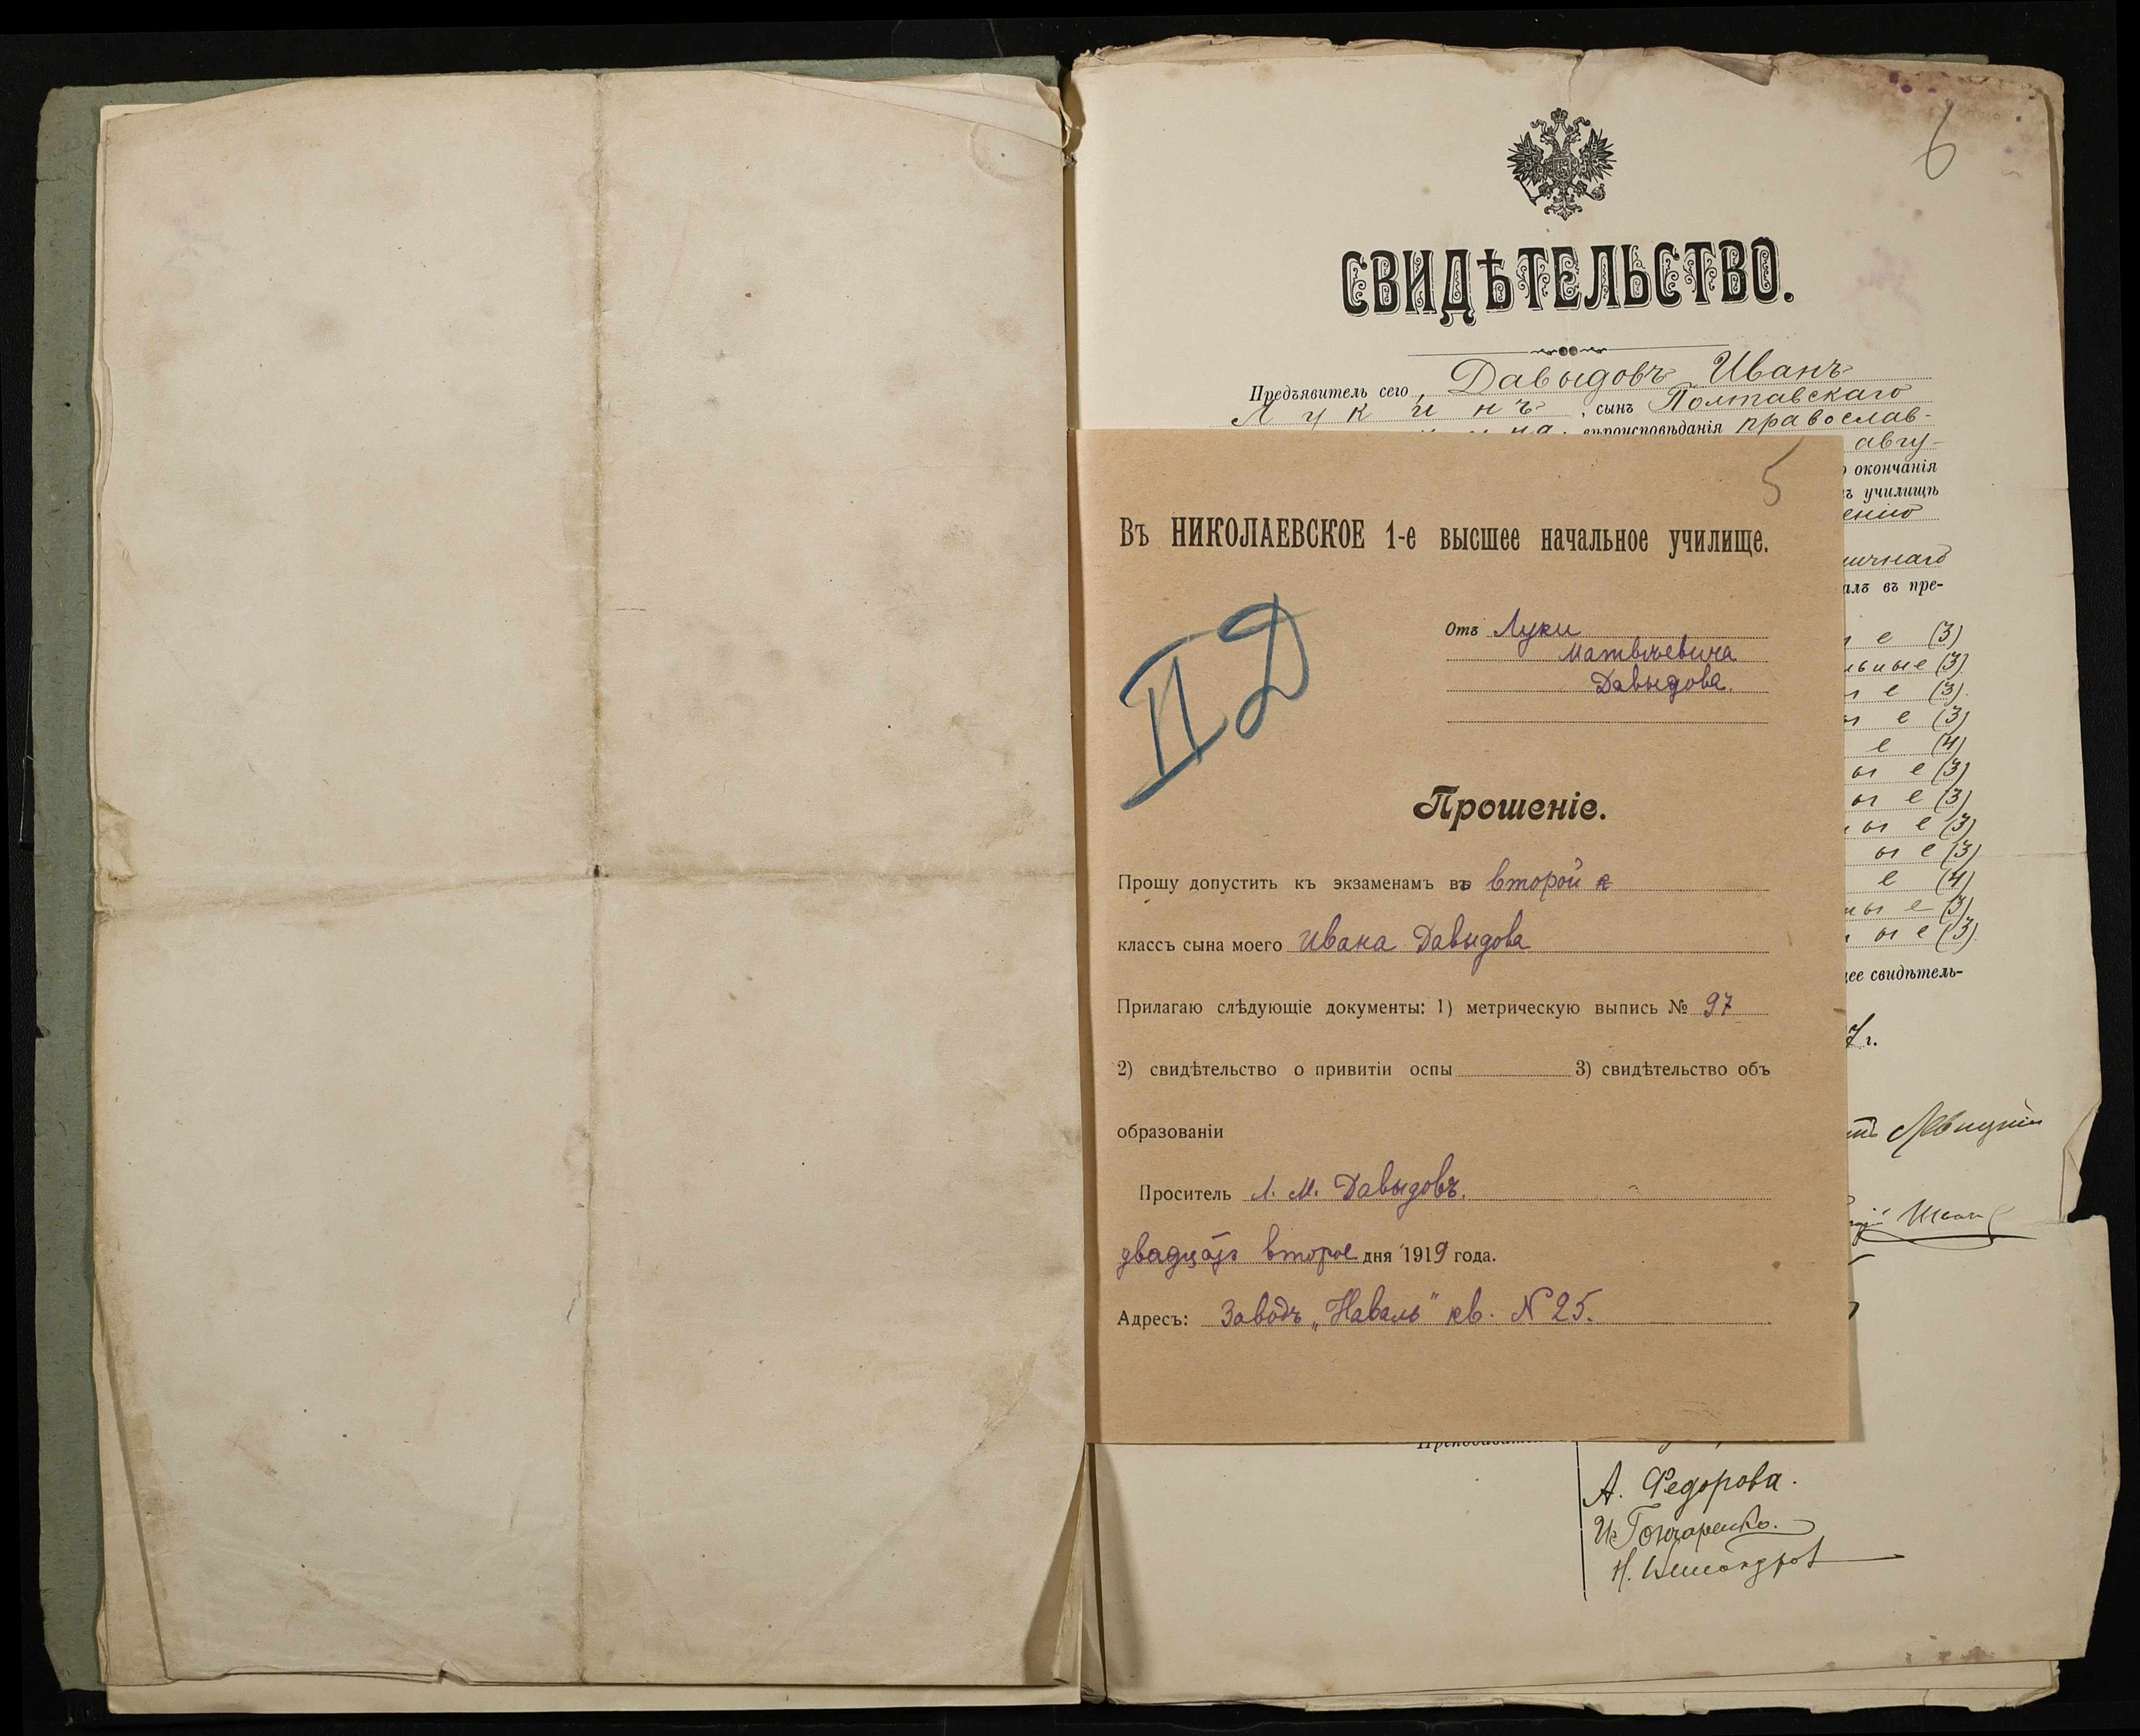 6
СВИДѢТЕЛЬСТВО.
Предъявитель сего, Давыдовъ Иванъ
Лукинъ, сынъ Полтавскаго
вѣроисповѣданія православ-
авгу-
окончанія
училищѣ
въ пре-
е (3)
льные (3).
е (3).
ы е (3)
е (4)
ы е (3)
ы е (3)
ы е (3)
ы е (3)
е (4)
ны е (3)
ы е (3).
свидѣтель-
7 г.
А. Федорова.
И. Гончаренко.
5
Въ НИКОЛАЕВСКОЕ 1-е высшее начальное училище.
II Д
Отъ Луки
Матвѣевича
Давыдова.
Прошеніе.
Прошу допустить къ экзаменамъ въ второй к
классъ сына моего Ивана Давыдова
Прилагаю слѣдующіе документы: 1) метрическую выпись № 97
2) свидѣтельство о привитіи оспы 3) свидѣтельство объ
образованіи
Проситель Л. М. Давыдовъ.
двадцать второе дня 1919 года.
Адресъ: Заводъ „Наваль" кв. N 25.